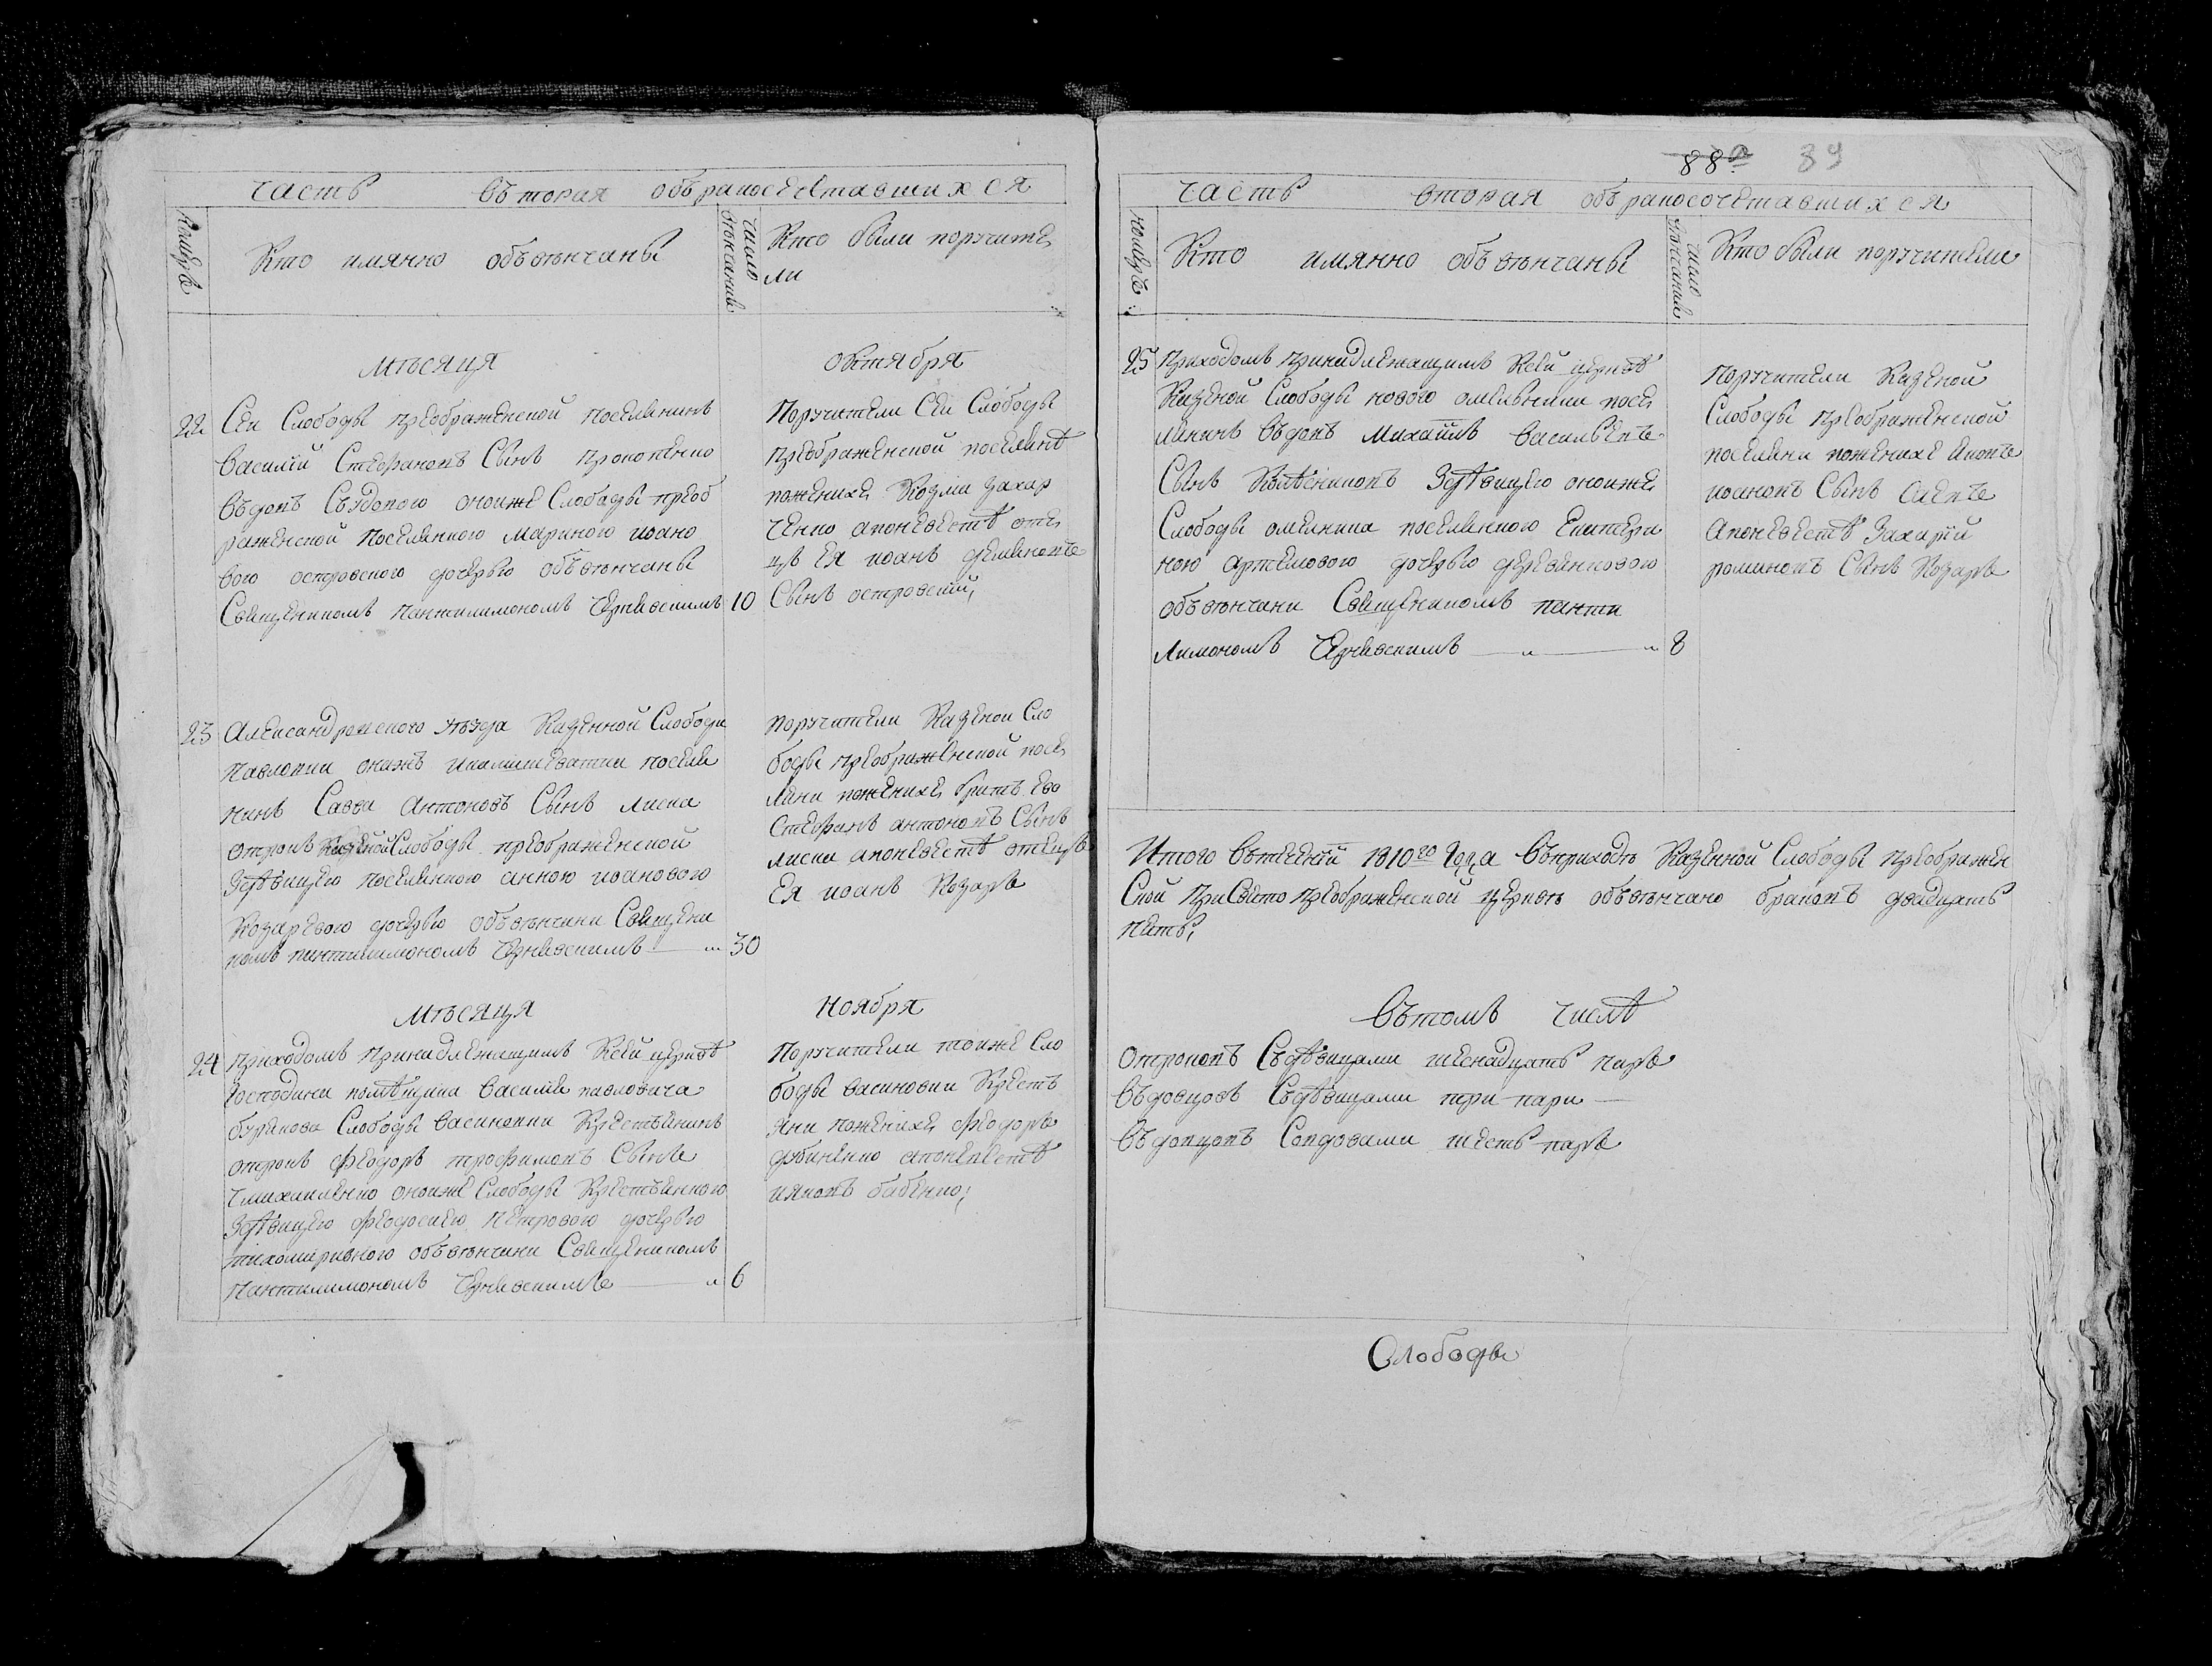 часть въторая обракосочетавшихся
Номеръ
Кто имянно объвѣнчаны
число вѣнчаниѣ
Кто были поручите
ли
мѣсяца октября
22 Сеи Слободы преображенской поселянинъ
василий Стефановъ Сынъ прокопенко
въдовъ Съвдовою оноиже Слободы преоб
раженской поселянкою мариною иоано
вою островскою дочерью объвѣнчаны
Священикомъ пантилимономъ Чернявскимъ 10
Поручители Сеи Слободы
преображенской поселянѣ
поженихе Козма захар
ченко апоневестѣ оте
цъ Ея иоанъ демяновъ
Сынъ островский,
23 Александрийского уѣзда Казенной Слободы
павловки онажъ поселя
нинъ Савва антоновъ Сынъ лиска
отрокъ Казеной Слободы преображенской
Здѣвицею поселянкою анною иоановою
Козаревою дочерью объвѣнчани Священи
комъ пантилимономъ Чернявскимъ 30
поручители Казеной Сло
боды преображенской посе
ляни поженихе братъ Его
Стефанъ антоновъ Сынъ
лиска апоневестѣ отецъ
Ея иоанъ Козаръ
мѣсяца Ноября
24 приходомъ принадлежащимъ Ксей церквѣ
Господина помѣщика василия павловича
бутакова Слободы васиновки Крестьянинъ
отрокъ феодоръ трофимовъ Сынъ
оноиже Слободы Крестьянкою
Здѣвицею феодосиею петровою дочерью
тихомировною объвѣнчани Священикомъ
пантилимономъ Чернявскимъ 6
Поручители тоиже Сло
боды васиновки Кресть
яни поженихе феодоръ
дубиненко апоневестѣ
яковъ бабенко;
88 39
часть вторая обракосочетавшихся
номеръ
Кто имянно объвѣнчаны
число вѣнчаниѣ
Кто были поручители
25 Приходомъ принадлежащимъ Ксей церквѣ
Казеной Слободы нового омельника посе
лянинъ въдовъ михаилъ васильевъ
Сынъ Здѣвицею оноиже
Слободы омелника поселянкою Екатери
ною артемовою дочерью деревянковою
объвѣнчани Священикомъ панти
лимономъ Чернявскимъ 8
Поручители Казеной
Слободы преображенской
поселяни поженихе яковъ
иоановъ Сынъ
апоневестѣ Захарий
романовъ Сынъ Козаръ
Итого вътечений 1810го Года въприходѣ Казенной Слободы преображен
ской при Свято преображенской церквѣ объвѣнчано браковъ двадцать
пять,
вътомъ числѣ
отроковъ Съдѣвицами шеснадцать паръ
въдовцовъ Съдѣвицами три пари
въдовцовъ Совдовами шесть паръ
Слободы